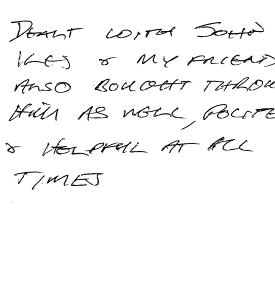 DEALT WITH JOHN
ILES & MY FRIEND
ALSO BOUGHT THROU
HIM AS WELL, POLITE
& HELPFUL AT ALL
TIMES